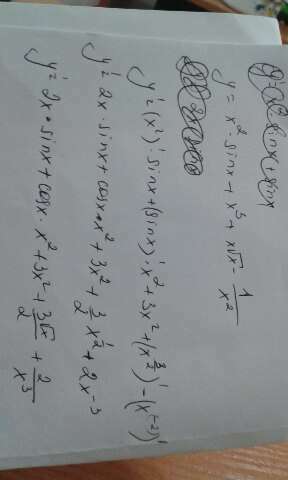 y = x² · sinx + x³ + x√x − 1/x²
y' = (x²)' · sinx + (sinx)' · x² + 3x² + (x^(3/2))' − (x^(−2))'
y' = 2x · sinx + cosx · x² + 3x² + 3/2 x^(1/2) + 2x − 3
y' = 2x · sinx + cosx · x² + 3x² + 3√x/2 + 2/x³